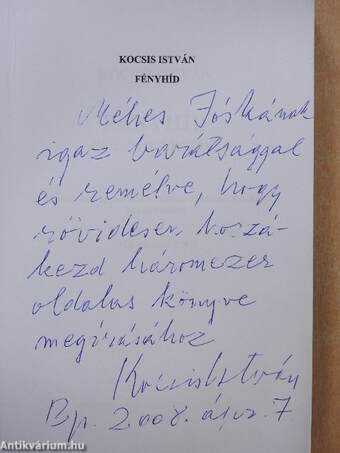 KOCSIS ISTVÁN
FÉNYHÍD
Méhes Jóskának
igaz barátsággal
és remélve, hogy
rövidesen hozzá-
kezd háromezer
oldalas könyve
megírásához
Kocsis István
Bp. 2008. 7
Antikvárium.hu